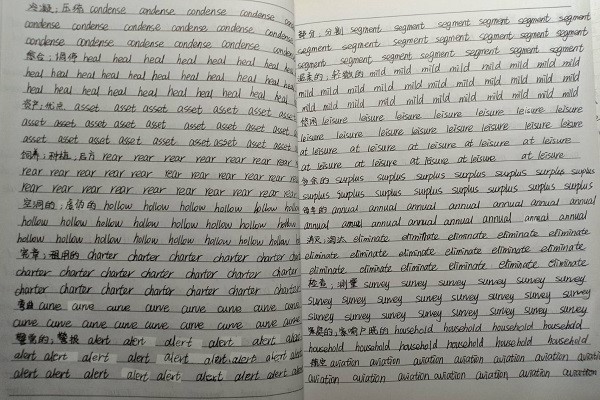 冷凝；压缩 condense condense condense condense con
condense condense condense condense condense
condense condense condense condense condense conden
愈合；调停 heal heal heal heal heal heal heal heal
heal heal heal heal heal heal heal heal heal
heal heal heal heal heal heal heal heal heal
资产；优点 asset asset asset asset asset asset
asset asset asset asset asset asset asset asset
asset asset asset asset asset asset asset asset
饲养；种植；后方 rear rear rear rear rear rear rear
rear rear rear rear rear rear rear rear rear
rear rear rear rear rear rear rear rear rear
空洞的；虚伪的 hollow hollow hollow hollow hollow hollow
hollow hollow hollow hollow hollow hollow hollow
hollow hollow hollow hollow hollow hollow hollow
宪章；租用的 charter charter charter charter charter
charter charter charter charter charter charter charter
charter charter charter charter charter charter charter
弯曲 curve curve curve curve curve curve curve
curve curve curve curve curve curve curve curve
警觉的；警报 alert alert alert alert alert alert
alert alert alert alert alert alert alert alert
alert alert alert alert alert alert alert alert
部分；分割 segment segment segment segment segment
segment segment segment segment segment segment
segment segment segment segment segment segment
温柔的；轻微的 mild mild mild mild mild mild mild mild
mild mild mild mild mild mild mild mild mild
mild mild mild mild mild mild mild mild mild
悠闲 leisure leisure leisure leisure leisure leisure
leisure leisure leisure leisure leisure leisure leisure
at leisure at leisure at leisure at leisure
at leisure at leisure at leisure at leisure
多余的 surplus surplus surplus surplus surplus surplus
surplus surplus surplus surplus surplus surplus surplus
每年的 annual annual annual annual annual annual annual
annual annual annual annual annual annual annual
清除；淘汰 eliminate eliminate eliminate eliminate eliminate
eliminate eliminate eliminate eliminate eliminate
eliminate eliminate eliminate eliminate eliminate
检查；测量 survey survey survey survey survey survey
survey survey survey survey survey survey survey
survey survey survey survey survey survey survey
家庭的；家喻户晓的 household household household household
household household household household household
航空 aviation aviation aviation aviation aviation aviation
aviation aviation aviation aviation aviation aviation